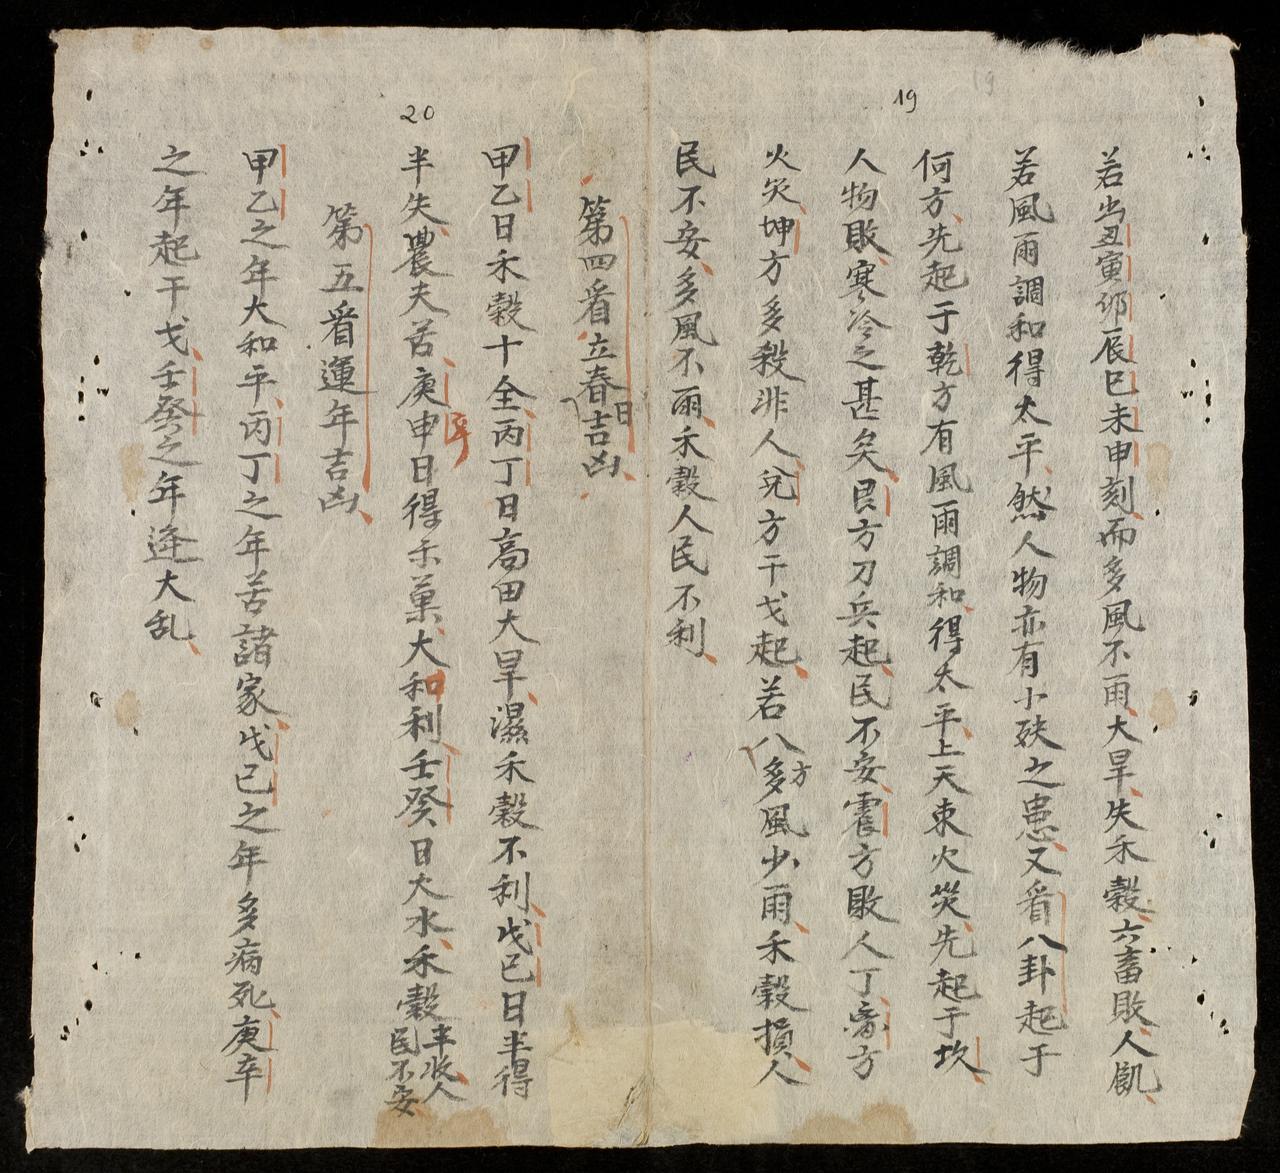 19
若当丑寅卯辰巳未申刻而多風不雨大旱失禾穀六畜敗人飢
若風雨調和得太平然人物亦有小殃之患又看八卦起于
何方先起于乾方有風雨調和得太平上天束火災先起于坎
人物敗寒冷之甚矣艮方刀兵起民不安震方敗人丁离方
火災坤方多殺非人兌方干戈起若八方多風少雨禾穀損人
民不安多風不雨禾穀人民不利
第四看立春日吉凶
20
甲乙日禾穀十全丙丁日高田大旱濕禾穀不利戊己日半得
半失農夫苦庚辛申日得禾菓大和利壬癸日大水禾穀半收人民不安
第五看運年吉凶
甲乙之年大和平丙丁之年苦諸家戊己之年多病死庚辛
之年起干戈壬癸之年逢大乱